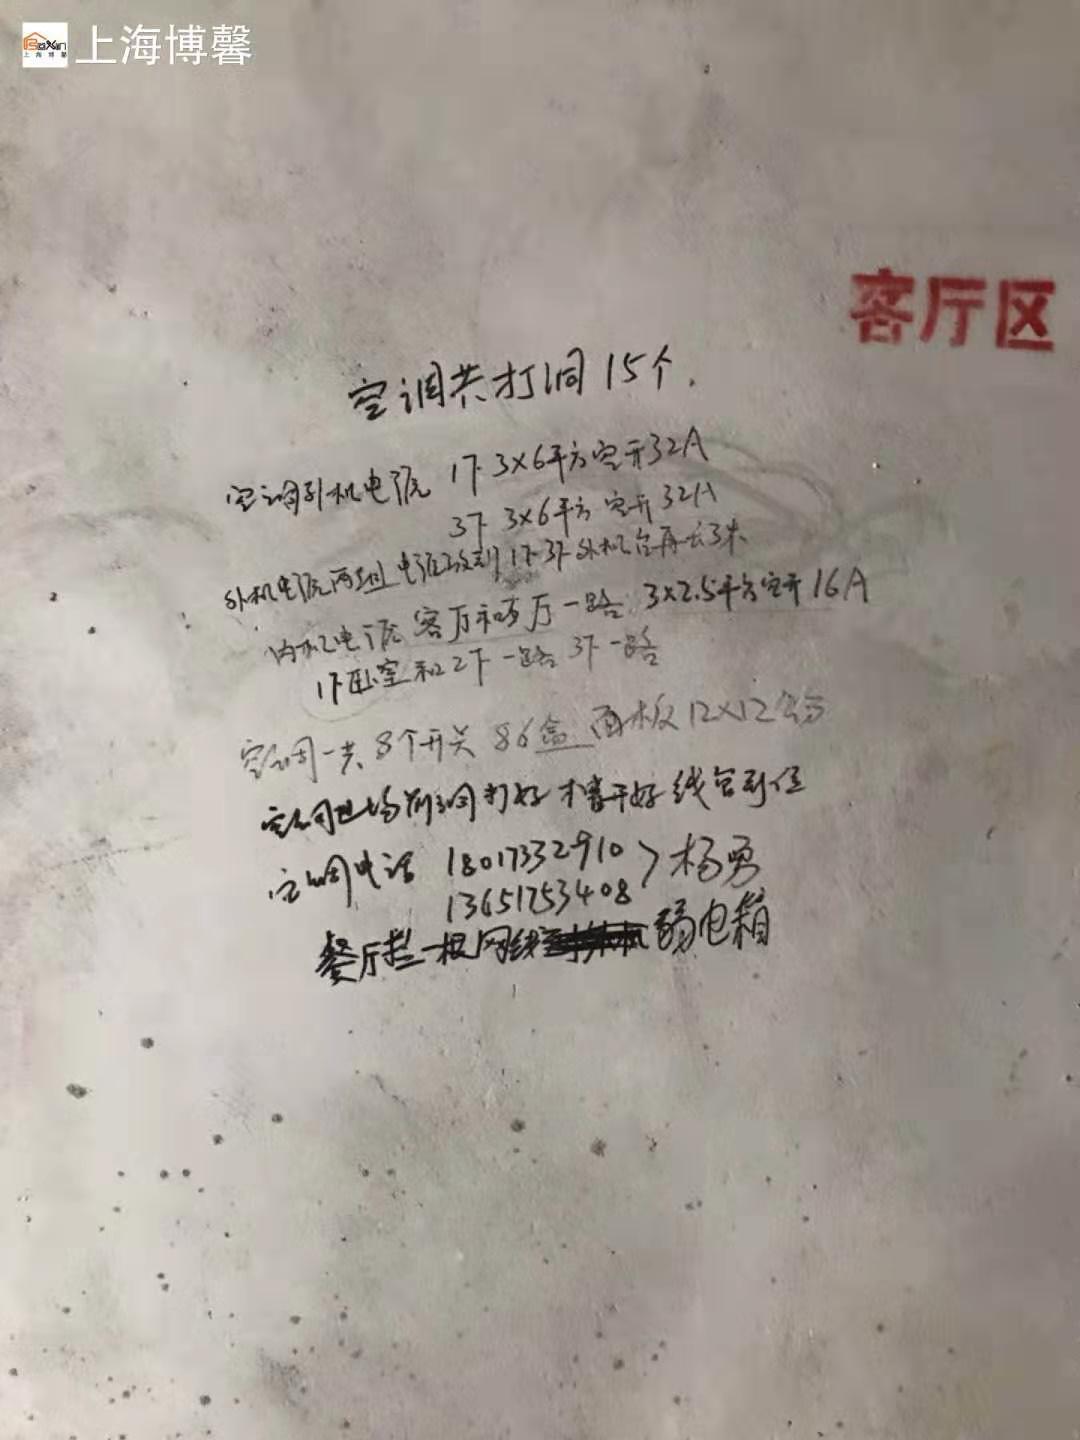 BoXin
上海博馨
上海博馨
客厅区
空调共打洞15个.
空调外机电源 1F 3×6平方空开32A
3F 3×6平方空开32A
外机电源两组 电源放到1F 3F外机位再长3米
内机电源 客厅和餐厅一路 3×2.5平方空开16A
1F卧室和2F一路 3F一路
空调一共8个开关 86盒 面板12×12公分
空调进场前洞打好 槽开好 线管到位
空调电话 18017332910 > 杨勇
13651253408
餐厅拦一根网线 弱电箱